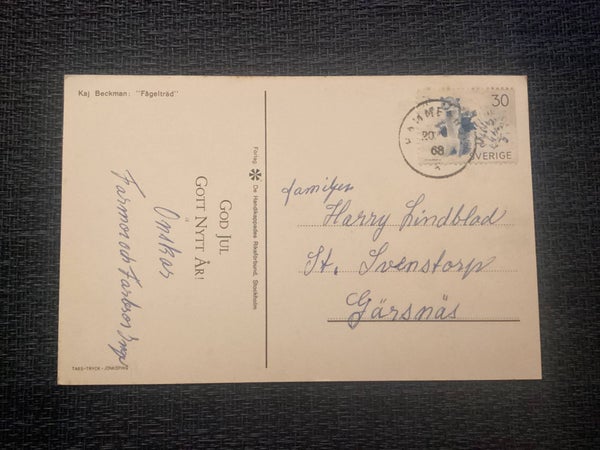 Kaj Beckman: "Fågelträd"
GOD JUL
GOTT NYTT ÅR!
Önskar
Farmor och Farbror Inge
Förlag De Handikappades Riksförbund, Stockholm
TABS-TRYCK - JÖNKÖPING
30
SVERIGE
HAMME
20
68
familjen
Harry Lindblad
St. Svenstorp
Gärsnäs